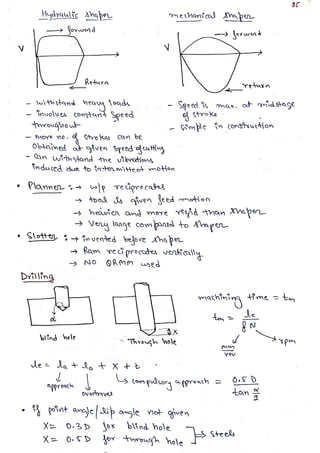 85
Hydraulic Shaper
mechanical shaper
forward
V
Return
forward
V
return
- withstand heavy loads
- involves constant speed throughout
- more no. of strokes can be
obtained at given speed of cutting
- can withstand the vibrations
induced due to intermittent motion
- Speed is max. at midstage
of stroke
- simple in construction
• Planner : → w/p reciprocates
→ tool is given feed motion
→ heavier and more rigid than shaper
→ very large compared to shaper
• Slotter : → invented before shaper
→ Ram reciprocates vertically
→ NO QRMM used
Drilling
α
blind hole
X
Through hole
machining time = tm
tm = le / f N
mm/rev
rpm
le = la + lo + X + t
approach
overtravel
compulsory approach = 0.5 D / tan α/2
• If point angle/lip angle not given
X = 0.3 D for blind hole
X = 0.5 D for through hole
Steels